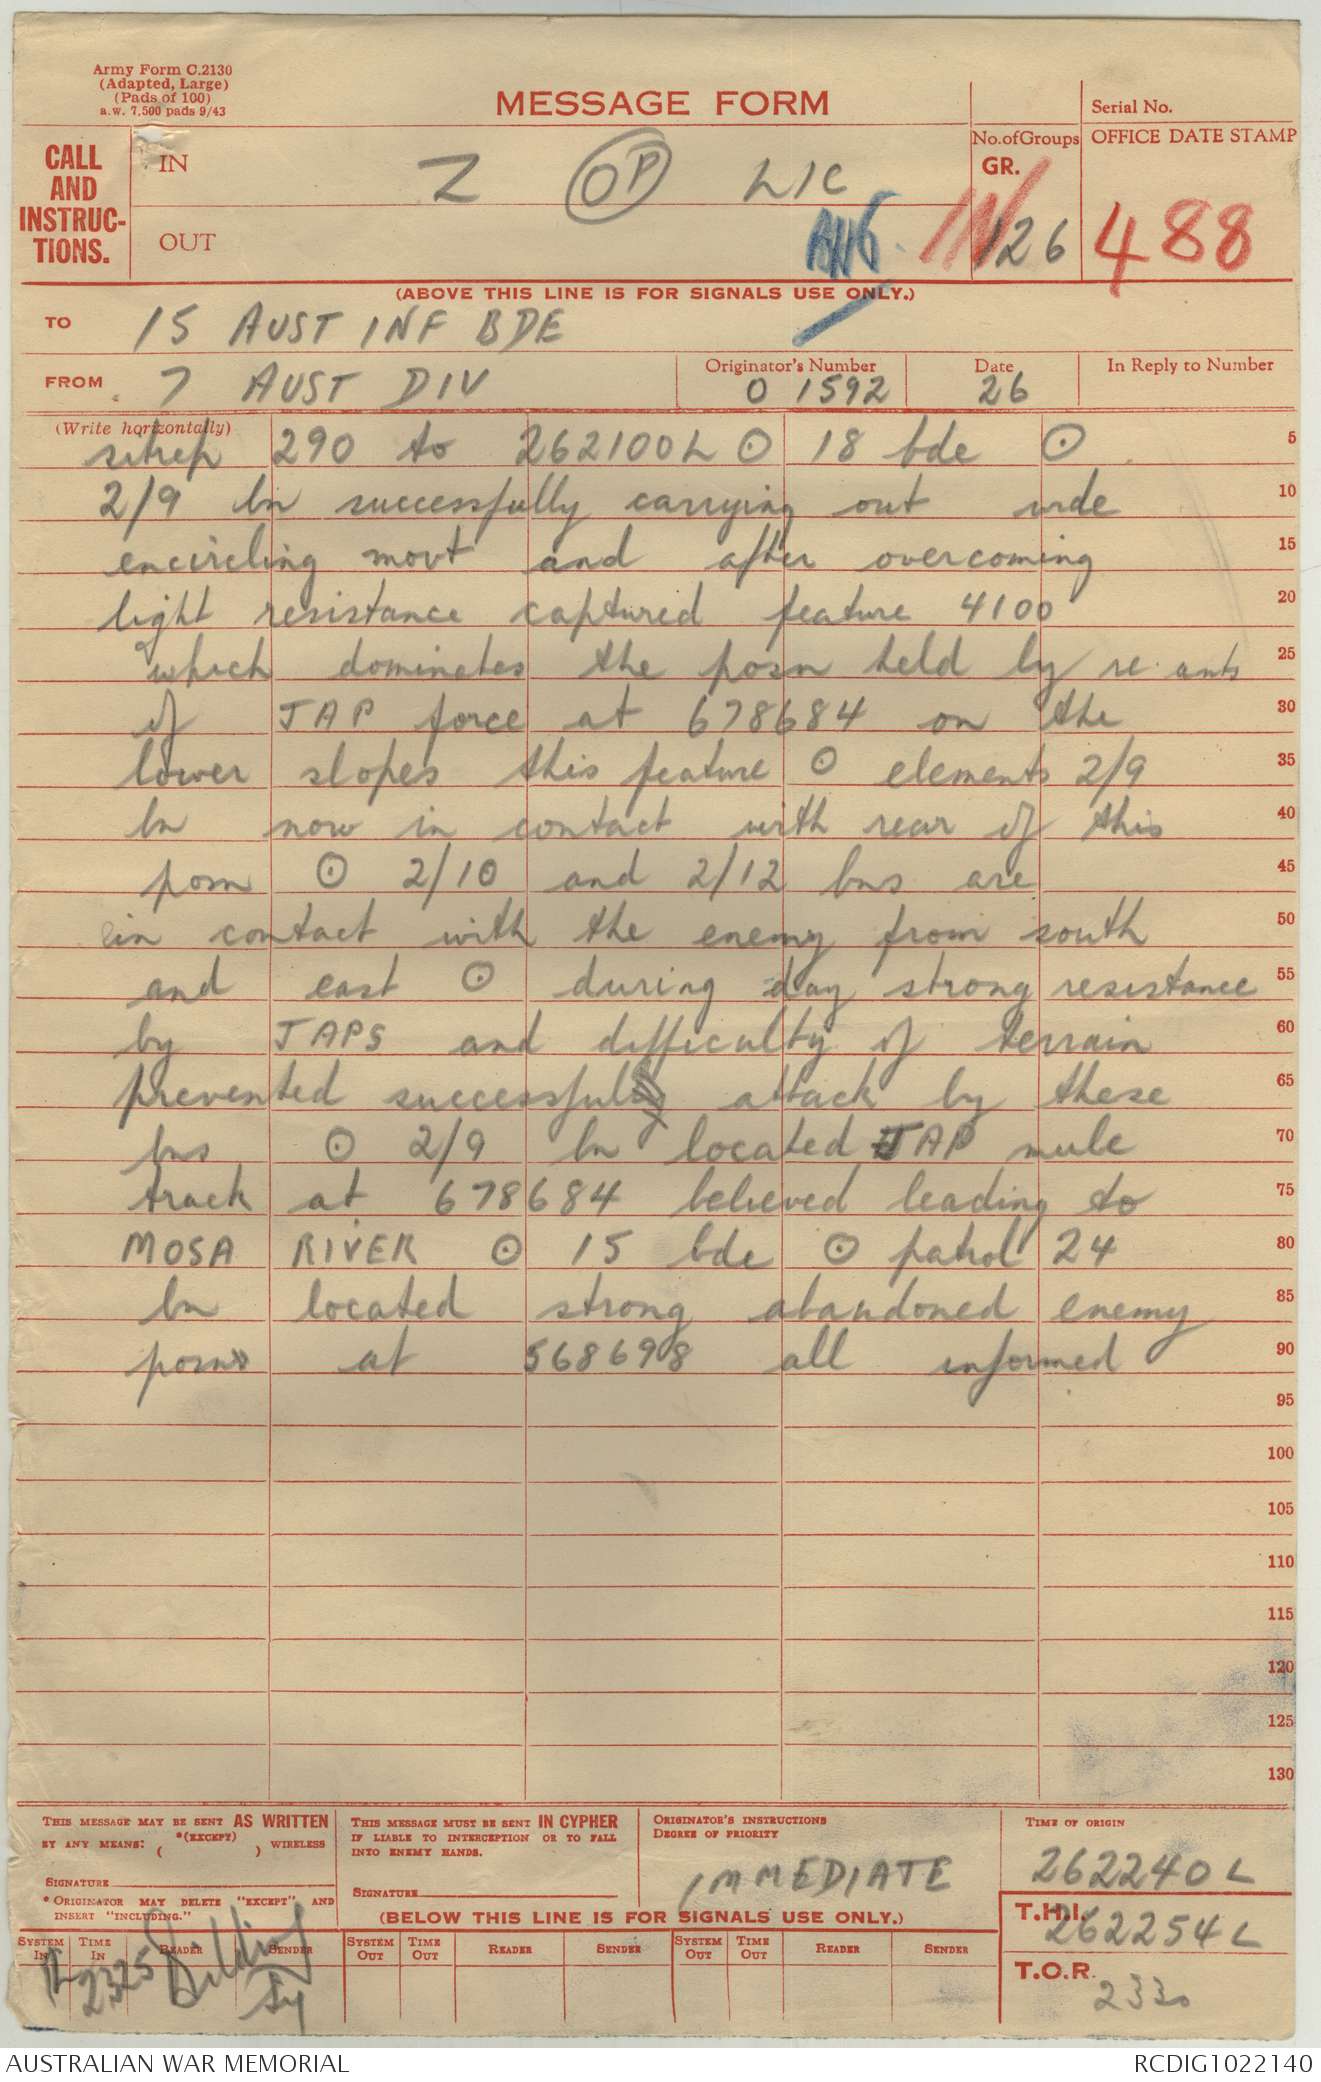 Army Form C.2130
(Adapted, Large)
(Pads of 100)
a.w. 7,500 pads 9/43
MESSAGE FORM
Serial No.
CALL
AND
INSTRUC-
TIONS.
IN
Z OP LIC
No. of Groups
GR.
126
OFFICE DATE STAMP
OUT
IN
488
(ABOVE THIS LINE IS FOR SIGNALS USE ONLY.)
TO 15 AUST INF BDE
FROM 7 AUST DIV
Originator's Number
O 1592
Date
26
In Reply to Number
(Write horizontally)
sitrep 290 to 262100L ⊙ 18 bde ⊙ 5
2/9 bn successfully carrying out wide 10
encircling movt and after overcoming 15
light resistance captured feature 4100 20
which dominates the posn held by 25
of JAP force at 678684 on the 30
lower slopes this feature ⊙ elements 2/9 35
bn now in contact with rear of this 40
posn ⊙ 2/10 and 2/12 bns are 45
in contact with the enemy from south 50
and east ⊙ during day strong resistance 55
by JAPS and difficulty of terrain 60
prevented successful attack by these 65
bns ⊙ 2/9 bn located JAP mule 70
track at 678684 believed leading to 75
MOSA RIVER ⊙ 15 bde ⊙ patrol 24 80
bn located strong abandoned enemy 85
posns at 568698 all informed 90
95
100
105
110
115
120
125
130
THIS MESSAGE MAY BE SENT AS WRITTEN
BY ANY MEANS: *(EXCEPT) ( ) WIRELESS
SIGNATURE
* ORIGINATOR MAY DELETE "EXCEPT" AND
INSERT "INCLUDING."
THIS MESSAGE MUST BE SENT IN CYPHER
IF LIABLE TO INTERCEPTION OR TO FALL
INTO ENEMY HANDS.
SIGNATURE
ORIGINATOR'S INSTRUCTIONS
DEGREE OF PRIORITY
IMMEDIATE
TIME OF ORIGIN
262240L
(BELOW THIS LINE IS FOR SIGNALS USE ONLY.)
T.H.I.
262254L
SYSTEM IN
TIME IN
READER
SENDER
SYSTEM OUT
TIME OUT
READER
SENDER
SYSTEM OUT
TIME OUT
READER
SENDER
2325
T.O.R.
2330
AUSTRALIAN WAR MEMORIAL
RCDIG1022140